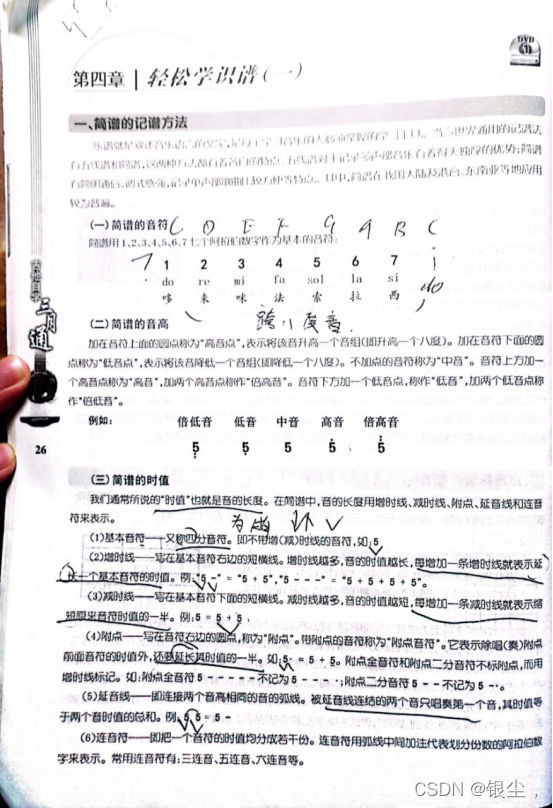 DVD
1
第四章 | 轻松学识谱(一)
一、简谱的记谱方法
乐谱就是叙述音乐语言的文字,是每个学习音乐的人必须掌握的学习工具。当今世界通用的记谱法
有五线谱和简谱,这两种方法都有着各自的特点:五线谱对于记录多声部音乐有着得天独厚的优势;简谱
有简明通俗、调式感强,记录单声部歌曲比较方便等特点。其中,简谱在我国大陆及港台、东南亚等地应用
较为普遍。
(一)简谱的音符 C D E F G A B C
简谱用1、2、3、4、5、6、7七个阿拉伯数字作为基本的音符:
7 1 2 3 4 5 6 7 i
do re mi fa sol la si do
哆 来 咪 法 索 拉 西
(二)简谱的音高 跨八度音
加在音符上面的圆点称为“高音点”,表示将该音升高一个音组(即升高一个八度)。加在音符下面的圆
点称为“低音点”,表示将该音降低一个音组(即降低一个八度)。不加点的音符称为“中音”。音符上方加一
个高音点称为“高音”,加两个高音点称作“倍高音”。音符下方加一个低音点,称作“低音”,加两个低音点称
作“倍低音”。
例如: 倍低音 低音 中音 高音 倍高音
5 5 5 5 5
(三)简谱的时值
我们通常所说的“时值”也就是音的长度。在简谱中,音的长度用增时线、减时线、附点、延音线和连音
符来表示。
(1)基本音符——又称四分音符。即不带增(减)时线的音符,如:5
(2)增时线——写在基本音符右边的短横线。增时线越多,音的时值越长,每增加一条增时线就表示延
长一个基本音符的时值。例:“5 -” = “5 + 5”,“5 - - -” = “5 + 5 + 5 + 5”。
(3)减时线——写在基本音符下面的短横线。减时线越多,音的时值越短,每增加一条减时线就表示缩
短原来音符时值的一半。例:5 = 5 + 5
(4)附点——写在音符右边的圆点,称为“附点”。带附点的音符称为“附点音符”。它表示除唱(奏)附点
前面音符的时值外,还要延长其时值的一半。如:5· = 5 + 5。附点全音符和附点二分音符不标附点,而用
增时线标记。如:附点全音符5 - - - - -不记为5 - - - ·;附点二分音符5 - -不记为5 - ·。
(5)延音线——即连接两个音高相同的音的弧线。被延音线连结的两个音只唱奏第一个音,其时值等
于两个音时值的总和。例:5 5 = 5 -
(6)连音符——即把一个音符的时值均分成若干份。连音符用弧线中间加注代表划分份数的阿拉伯数
字来表示。常用连音符有:三连音、五连音、六连音等。
吉他自学
三月通
26
CSDN @银尘